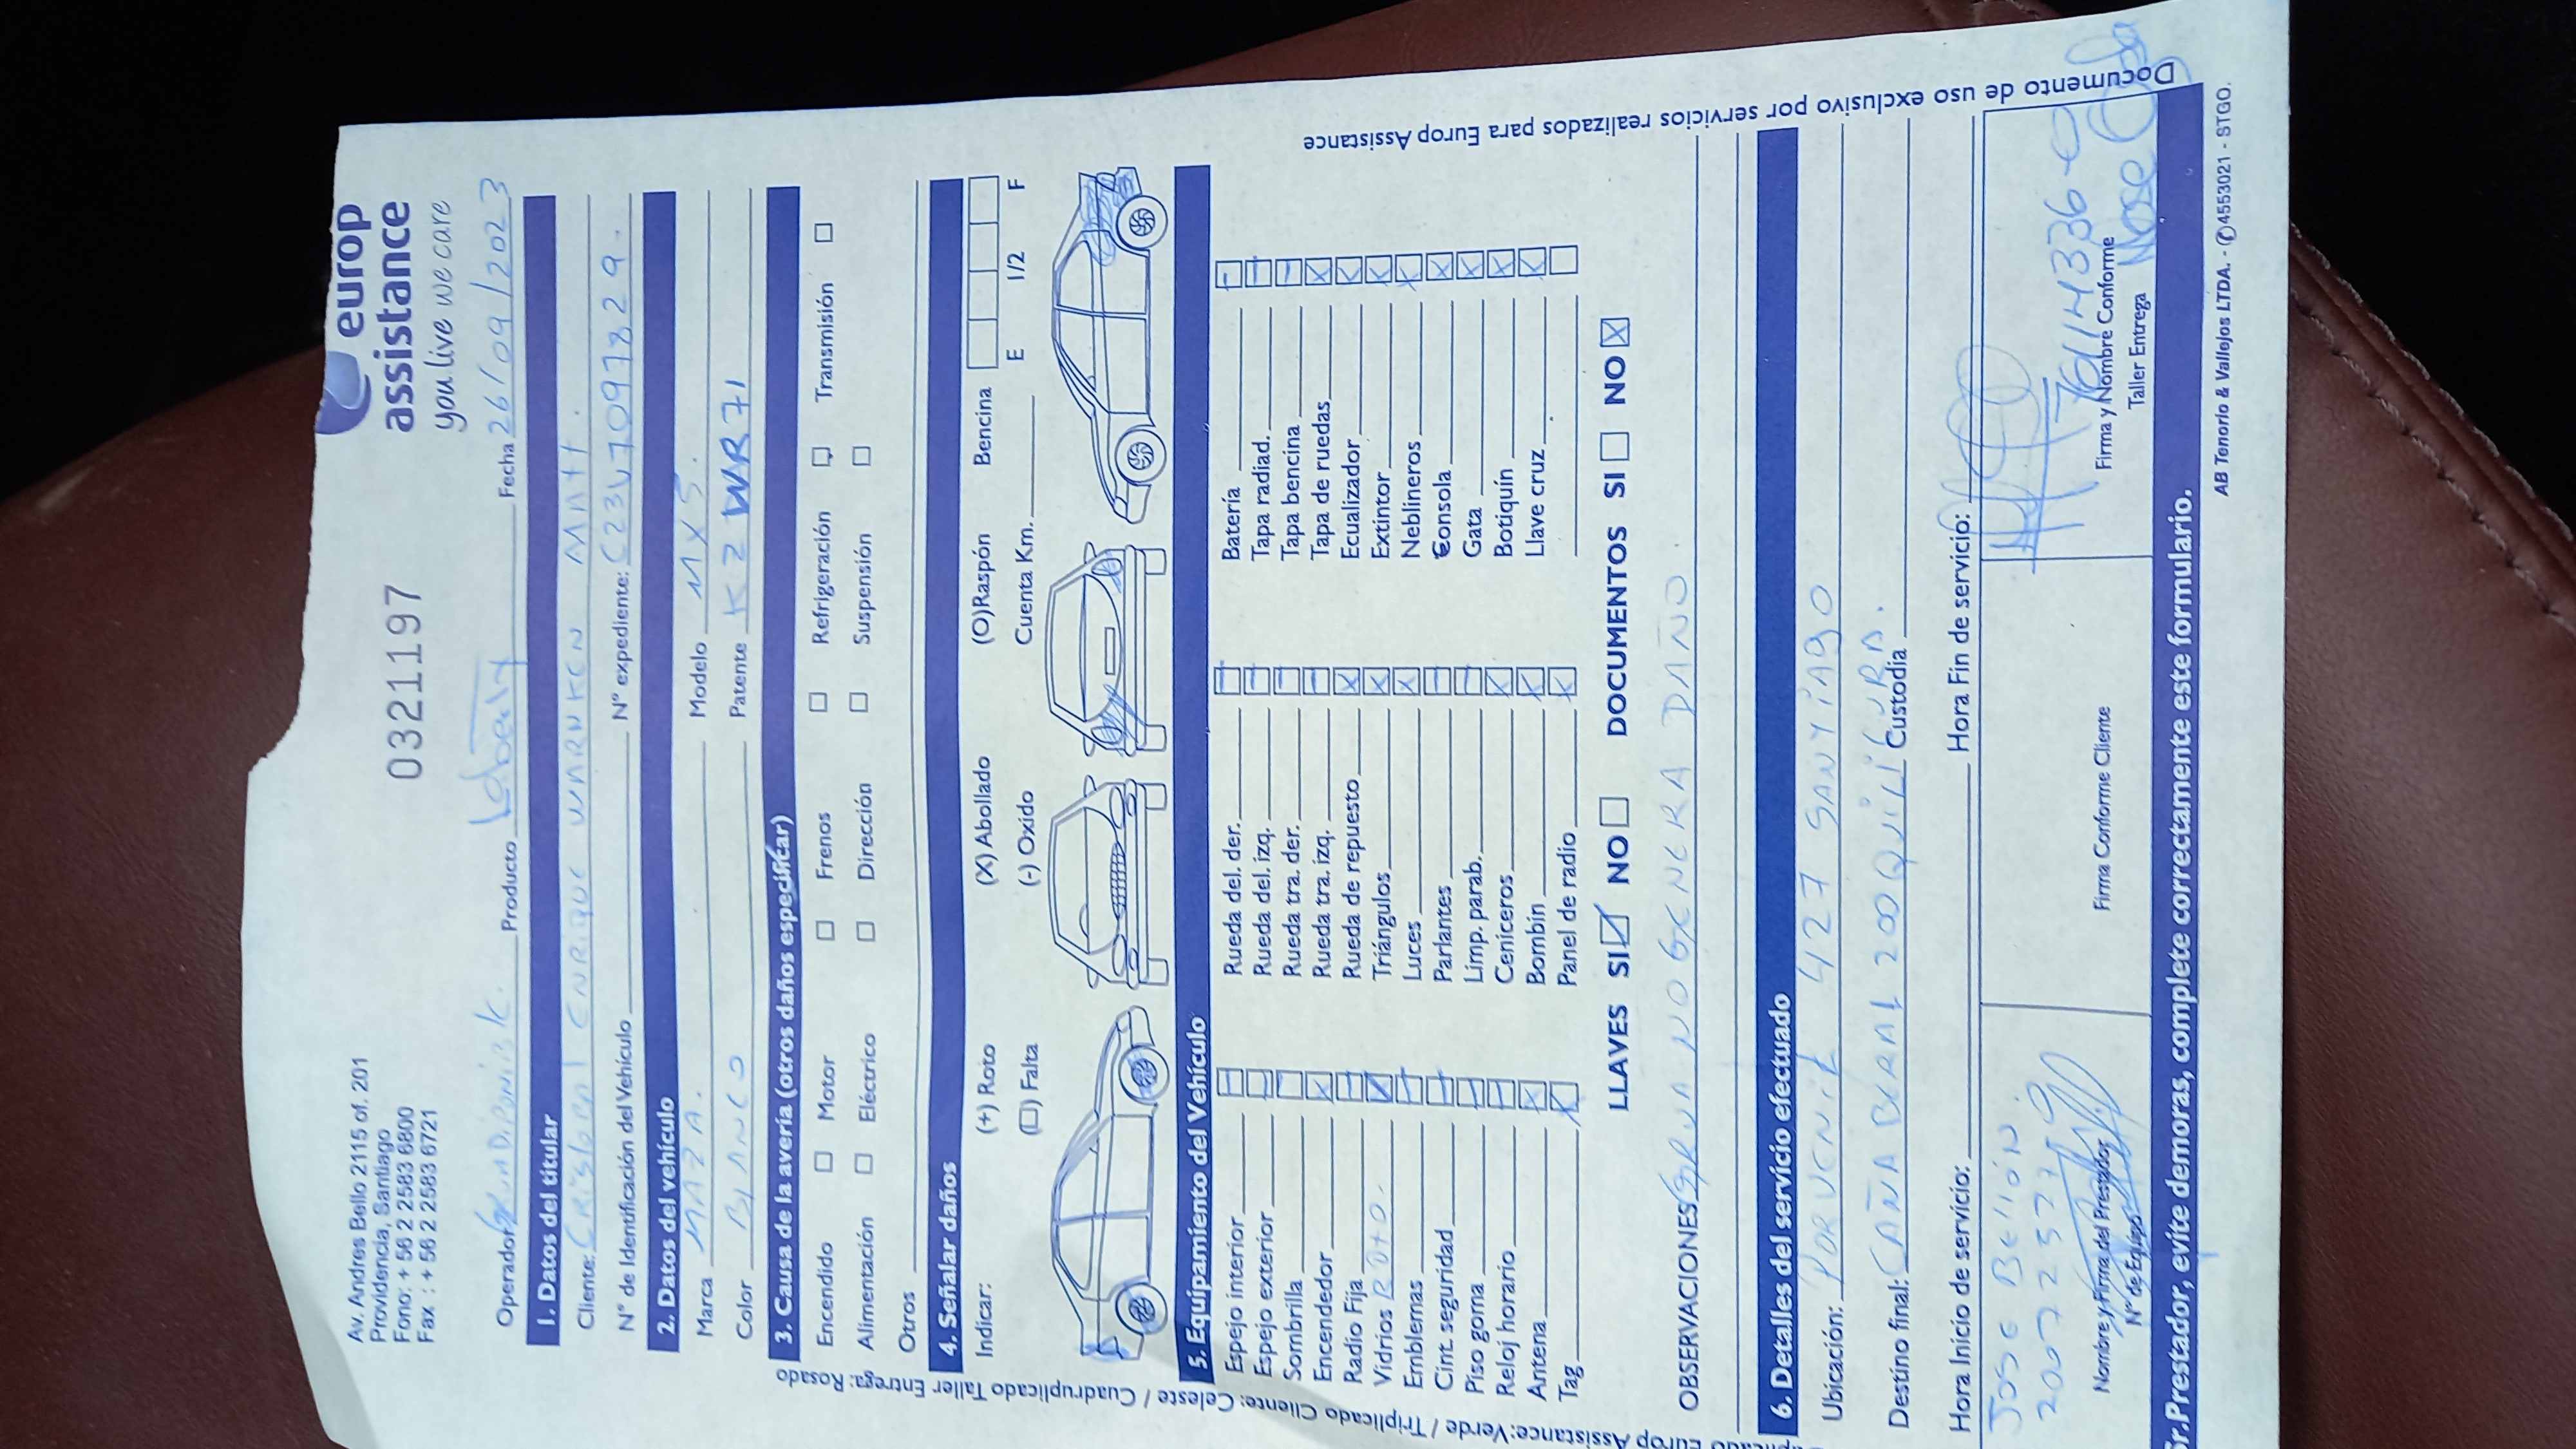 Av. Andres Bello 2115 of. 201
Providencia, Santiago
Fono: + 56 2 2583 6800
Fax : + 56 2 2583 6721
0321197
europ
assistance
you live we care
Operador Producto Fecha 26/09/2023
1. Datos del titular
Cliente: Cristobal Enrique
N° de Identificación del Vehículo N° expediente:
2. Datos del vehículo
Marca MAZDA. Modelo MX5.
Color BLANCO Patente KZWR71
3. Causa de la avería (otros daños especificar)
Encendido Motor Frenos Refrigeración Transmisión
Alimentación Eléctrico Dirección Suspensión
Otros
4. Señalar daños
Indicar: (+) Roto (X) Abollado (O) Raspón Bencina
(□) Falta (-) Oxido Cuenta Km. E 1/2 F
5. Equipamiento del Vehículo
Espejo interior Rueda del. der. Batería
Espejo exterior Rueda del. izq. Tapa radiad.
Sombrilla Rueda tra. der. Tapa bencina
Encendedor Rueda tra. izq. Tapa de ruedas
Radio Fija Rueda de repuesto Ecualizador
Vidrios Roto. Triángulos Extintor
Emblemas Luces Neblineros
Cint. seguridad Parlantes Consola
Piso goma Limp. parab. Gata
Reloj horario Ceniceros Botiquín
Antena Bombin Llave cruz
Tag Panel de radio
LLAVES SI NO DOCUMENTOS SI NO
OBSERVACIONES GRUA NO GENERA DAÑO.
6. Detalles del servicio efectuado
Ubicación: PORVENIR 427 SANTIAGO
Destino final: CAÑAVERAL 200 QUILICURA. Custodia
Hora Inicio de servicio: Hora Fin de servicio:
JOSE
Nombre y Firma del Prestador
N° de Equipo
Firma Conforme Cliente
Firma y Nombre Conforme
Taller Entrega
Sr. Prestador, evite demoras, complete correctamente este formulario.
AB Tenorio & Vallejos LTDA. - 4553021 - STGO.
Documento de uso exclusivo por servicios realizados para Europ Assistance
Europ Assistance: Verde / Triplicado Cliente: Celeste / Cuadruplicado Taller Entrega: Rosado